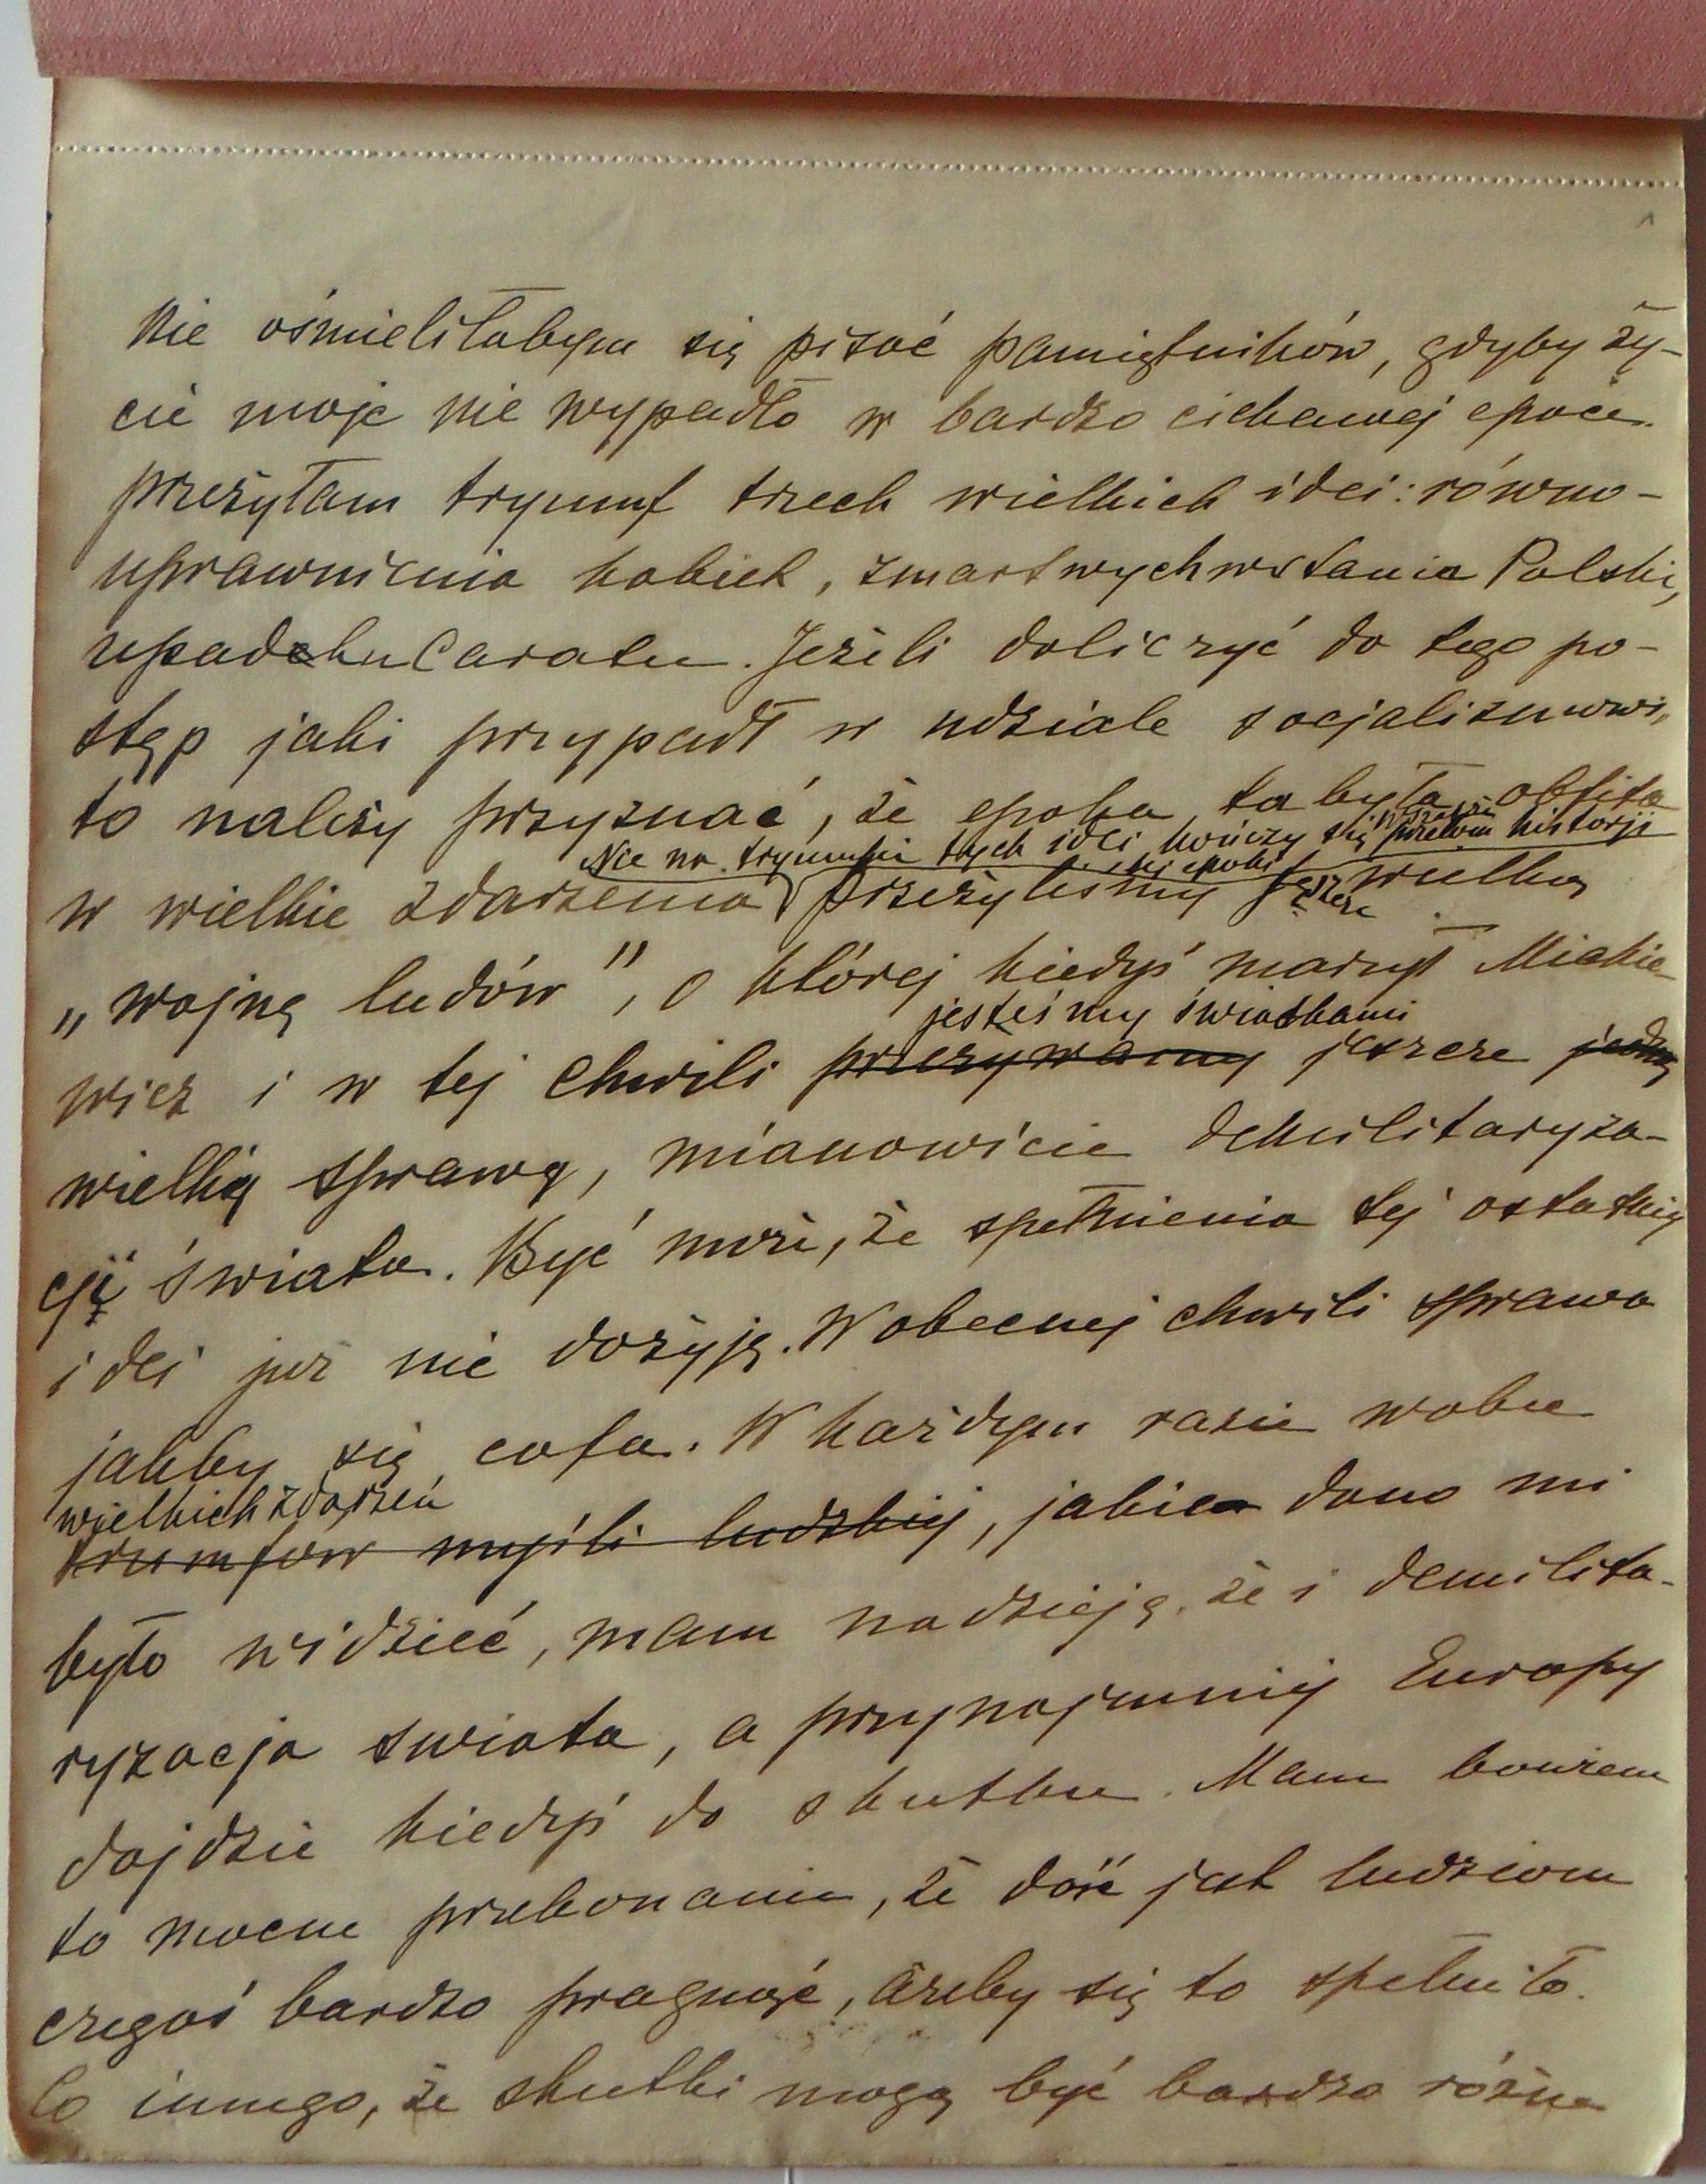 Nie ośmieliłabym się pisać pamiętników, gdyby ży-
cie moje nie wypadło w bardzo ciekawej epoce.
Przeżyłam tryumf trzech wielkich idei: równo-
uprawnienia kobiet, zmartwychwstania Polski,
upadku Caratu. Jeżeli doliczyć do tego po-
stęp jaki przypadł w udziale socjalizmowi,
to należy przyznać, że epoka ta była obfita
Nie na tryumfie tych idei kończy się przełom historji
tej epoki
w wielkie zdarzenia przeżyliśmy jeszcze wielką
„wojnę ludów", o której kiedyś marzył Mickie-
jesteśmy świadkami
wicz i w tej chwili przeżywamy jeszcze jedną
wielką sprawę, mianowicie demilitaryza-
cję świata. Być może, że spełnienia tej ostatniej
idei już nie dożyję. W obecnej chwili sprawa
jakby się cofa. W każdym razie wobec
wielkich zdarzeń
tryumfów myśli ludzkiej, jakie dano mi
było widzieć, mam nadzieję, że i demilita-
ryzacja świata, a przynajmniej Europy
dojdzie kiedyś do skutku. Mam bowiem
to mocne przekonanie, że dość jest ludziom
czegoś bardzo pragnąć, ażeby się to spełniło.
Co innego, że skutki mogą być bardzo różne